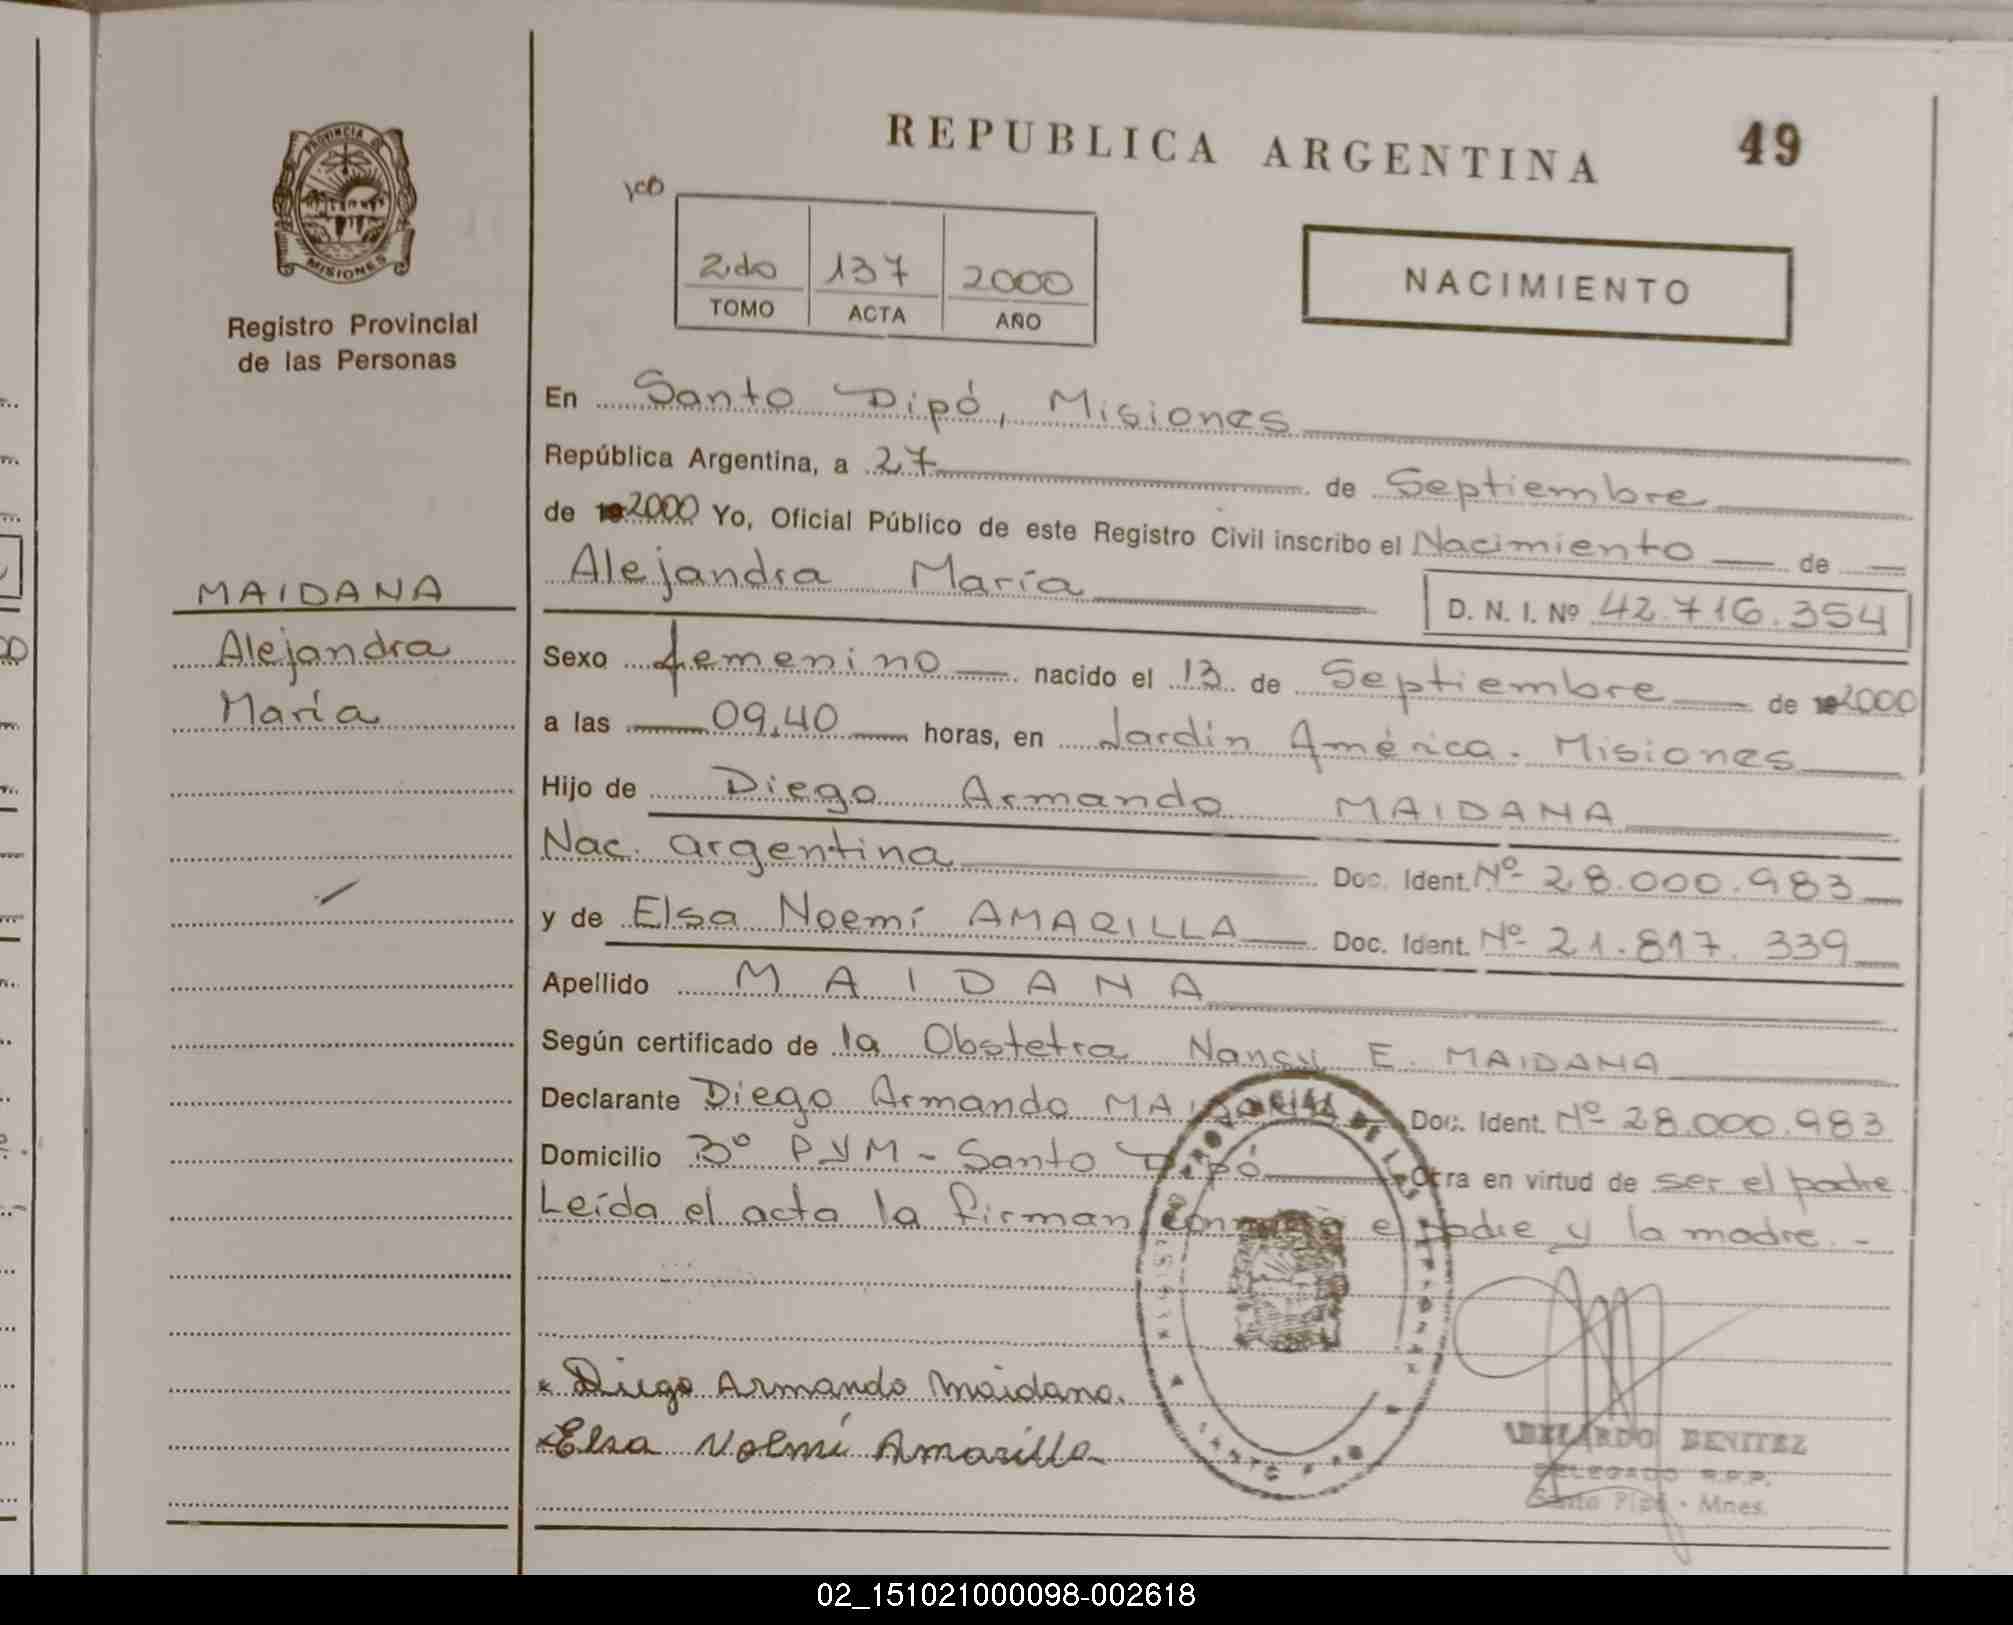 REPUBLICA ARGENTINA
49
PROVINCIA DE
MISIONES
Registro Provincial
de las Personas
2do 137 2000
TOMO ACTA AÑO
NACIMIENTO
En Santo Pipó, Misiones
República Argentina, a 27 de Septiembre
de 2000 Yo, Oficial Público de este Registro Civil inscribo el Nacimiento de
Alejandra María
D. N. I. Nº 42.716.354
MAIDANA
Alejandra
María
Sexo femenino nacido el 13 de Septiembre de 2000
a las 09,40 horas, en Jardín América. Misiones
Hijo de Diego Armando MAIDANA
Nac. argentina Doc. Ident. Nº 28.000.983
y de Elsa Noemí AMARILLA Doc. Ident. Nº 21.817.339
Apellido MAIDANA
Según certificado de la Obstetra Nancy E. MAIDANA
Declarante Diego Armando MAIDANA Doc. Ident. Nº 28.000.983
Domicilio Bº PyM - Santo Pipó Otra en virtud de ser el padre.
Leída el acta la firman conmigo el padre y la madre. -
Diego Armando Maidana.
Elsa Noemí Amarilla
ABELARDO BENITEZ
DELEGADO R.P.P.
Santo Pipó - Mnes.
02_151021000098-002618